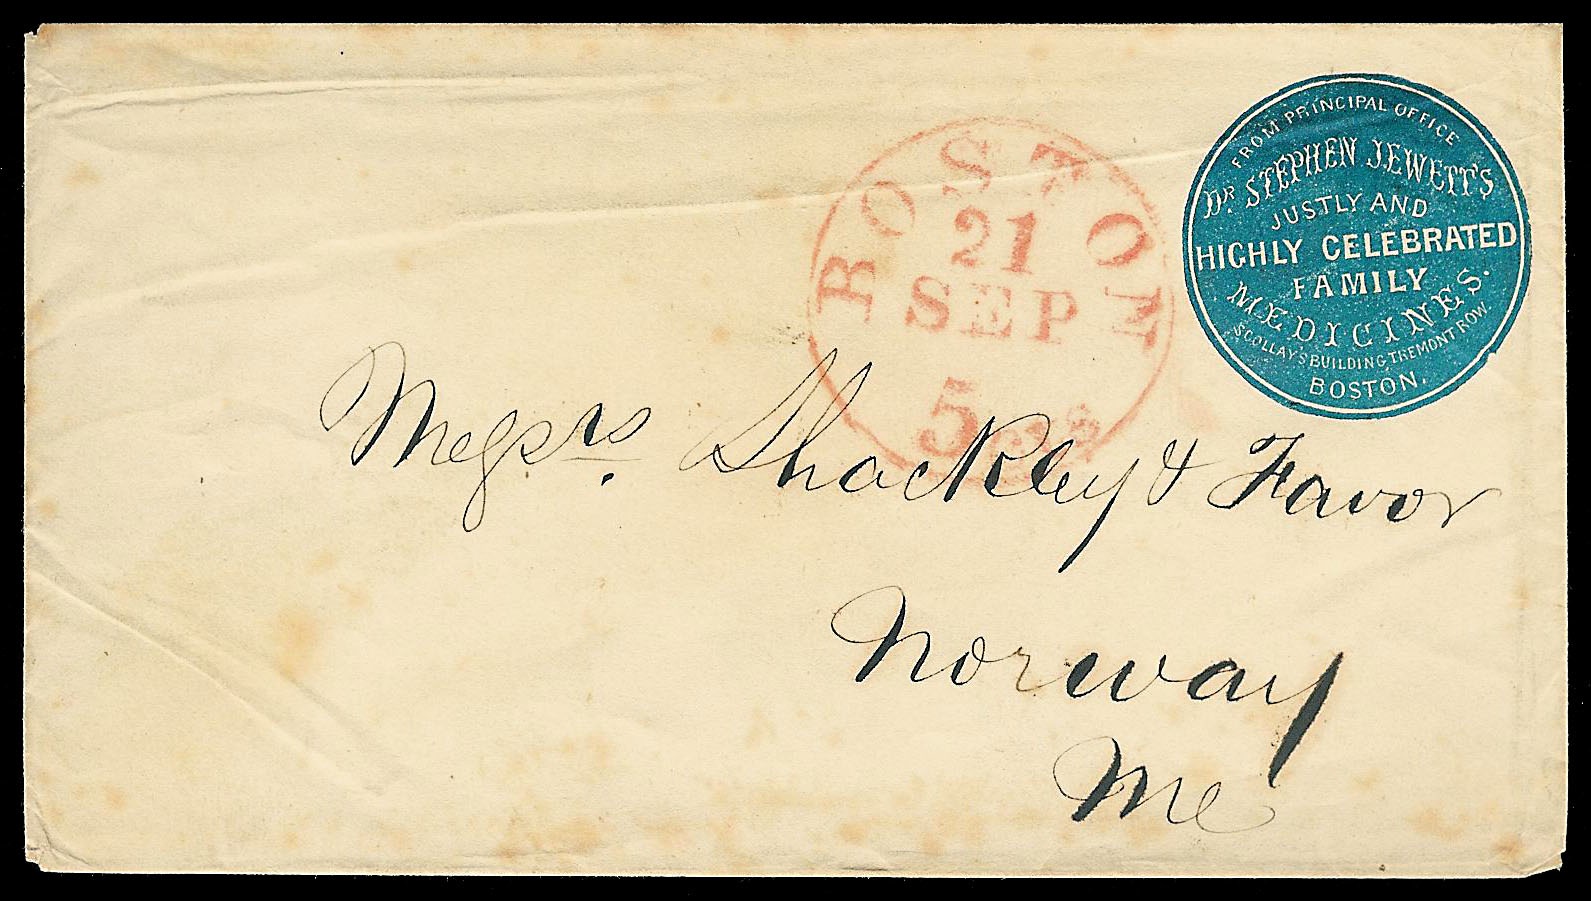 FROM PRINCIPAL OFFICE
DR. STEPHEN JEWETT'S
JUSTLY AND
HIGHLY CELEBRATED
FAMILY
MEDICINES.
SCOLLAY'S BUILDING, TREMONT ROW,
BOSTON.
BOSTON
21
SEP
5 cts
Messrs. Shackley & Favor
Norway
Me